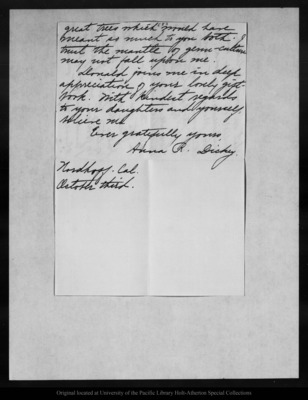 great trees which would have
meant as much to you both. I
trust the mantle of
may not fall upon me.
Donald joins me in deep
appreciation of your lovely gift-
book. With kindest regards
to your daughters and yourself
believe me
Ever gratefully yours
Anna R. Dickey.
Nordhoff. Cal.
October third.
Original located at University of the Pacific Library Holt-Atherton Special Collections